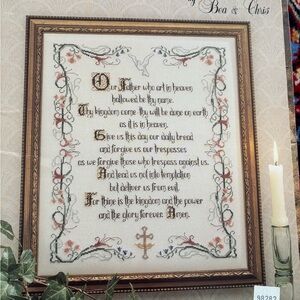 of Bea & Chris
Our Father who art in heaven,
hallowed be thy name.
Thy kingdom come thy will be done on earth
as it is in heaven.
Give us this day our daily bread
and forgive us our trespasses
as we forgive those who trespass against us.
And lead us not into temptation
but deliver us from evil.
For thine is the kingdom and the power
and the glory forever. Amen.
90282